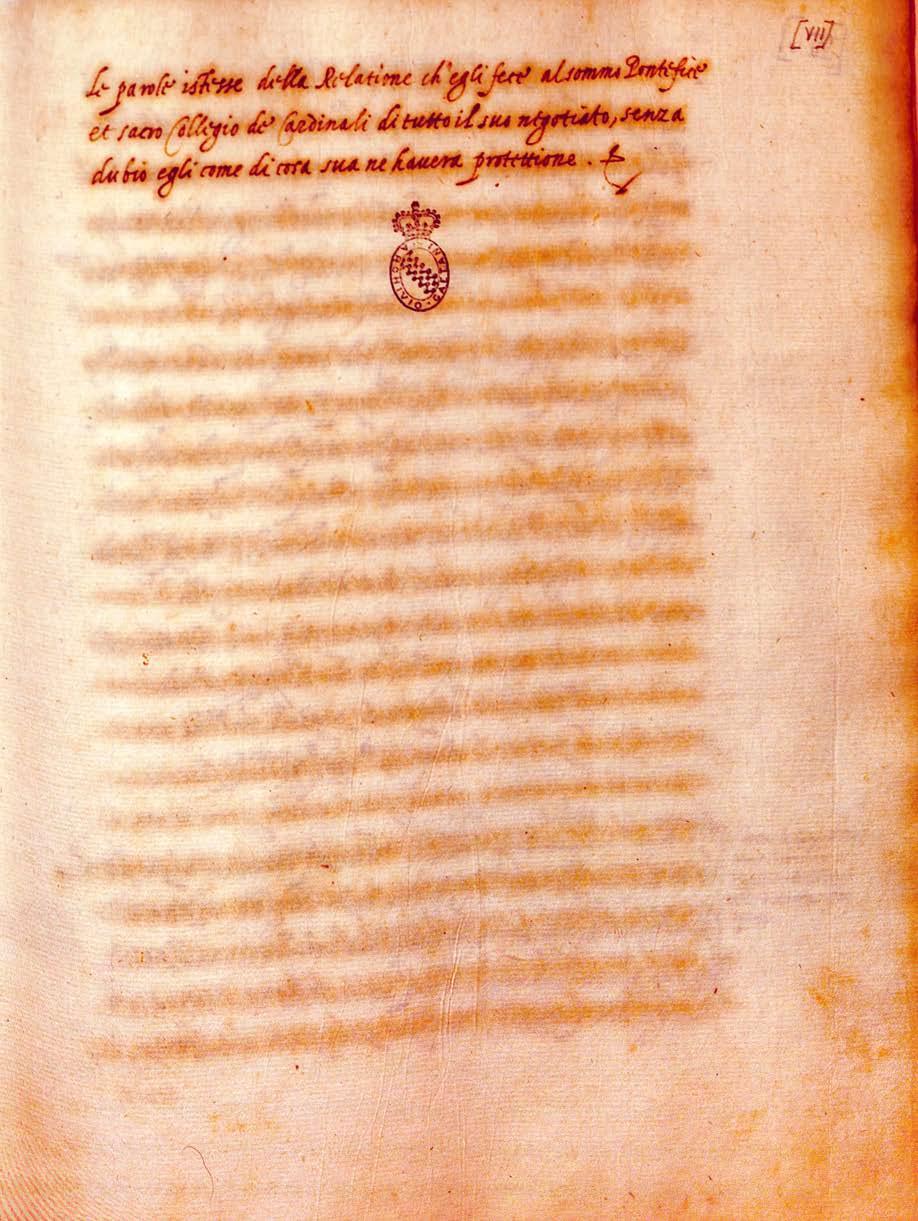 [VII]
Le parole istesse della Relatione ch'egli fece al sommo Pontefice
et sacro Collegio de Cardinali di tutto il suo negotiato, senza
dubio egli come di cosa sua ne havera protettione.
ARCHIVIO CAETANI